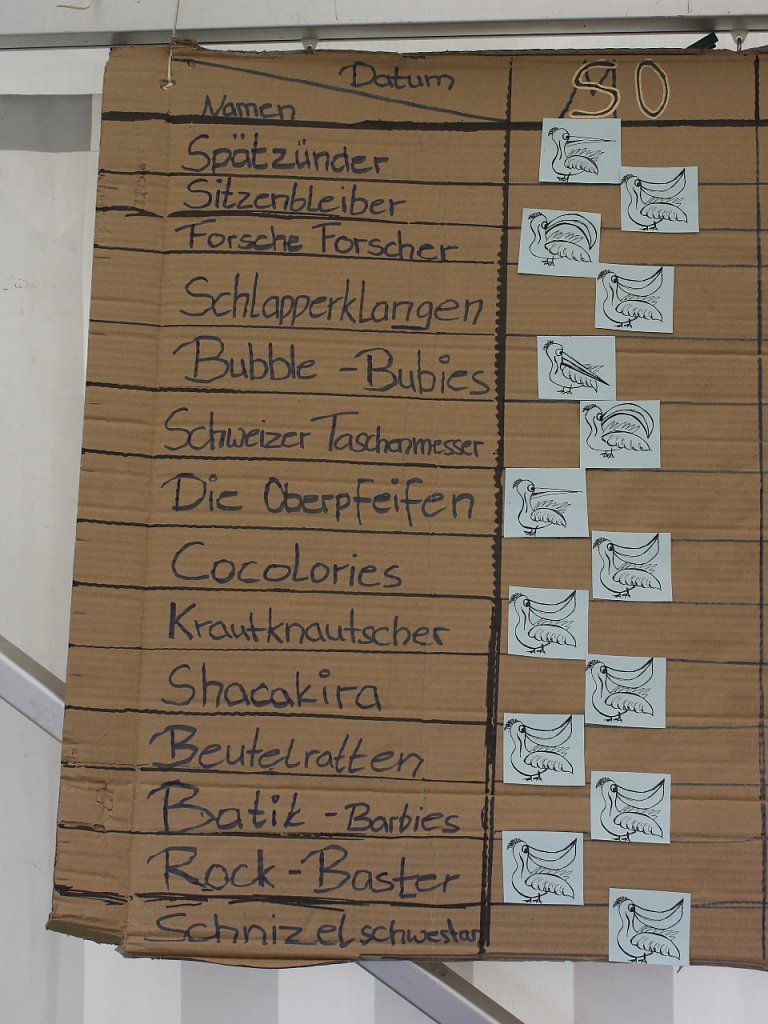 Datum
Namen
SO
Spätzünder
Sitzenbleiber
Forsche Forscher
Schlapperklangen
Bubble - Bubies
Schweizer Taschenmesser
Die Oberpfeifen
Cocolories
Krautknautscher
Shacakira
Beutelratten
Batik - Barbies
Rock - Baster
Schnizelschwestan